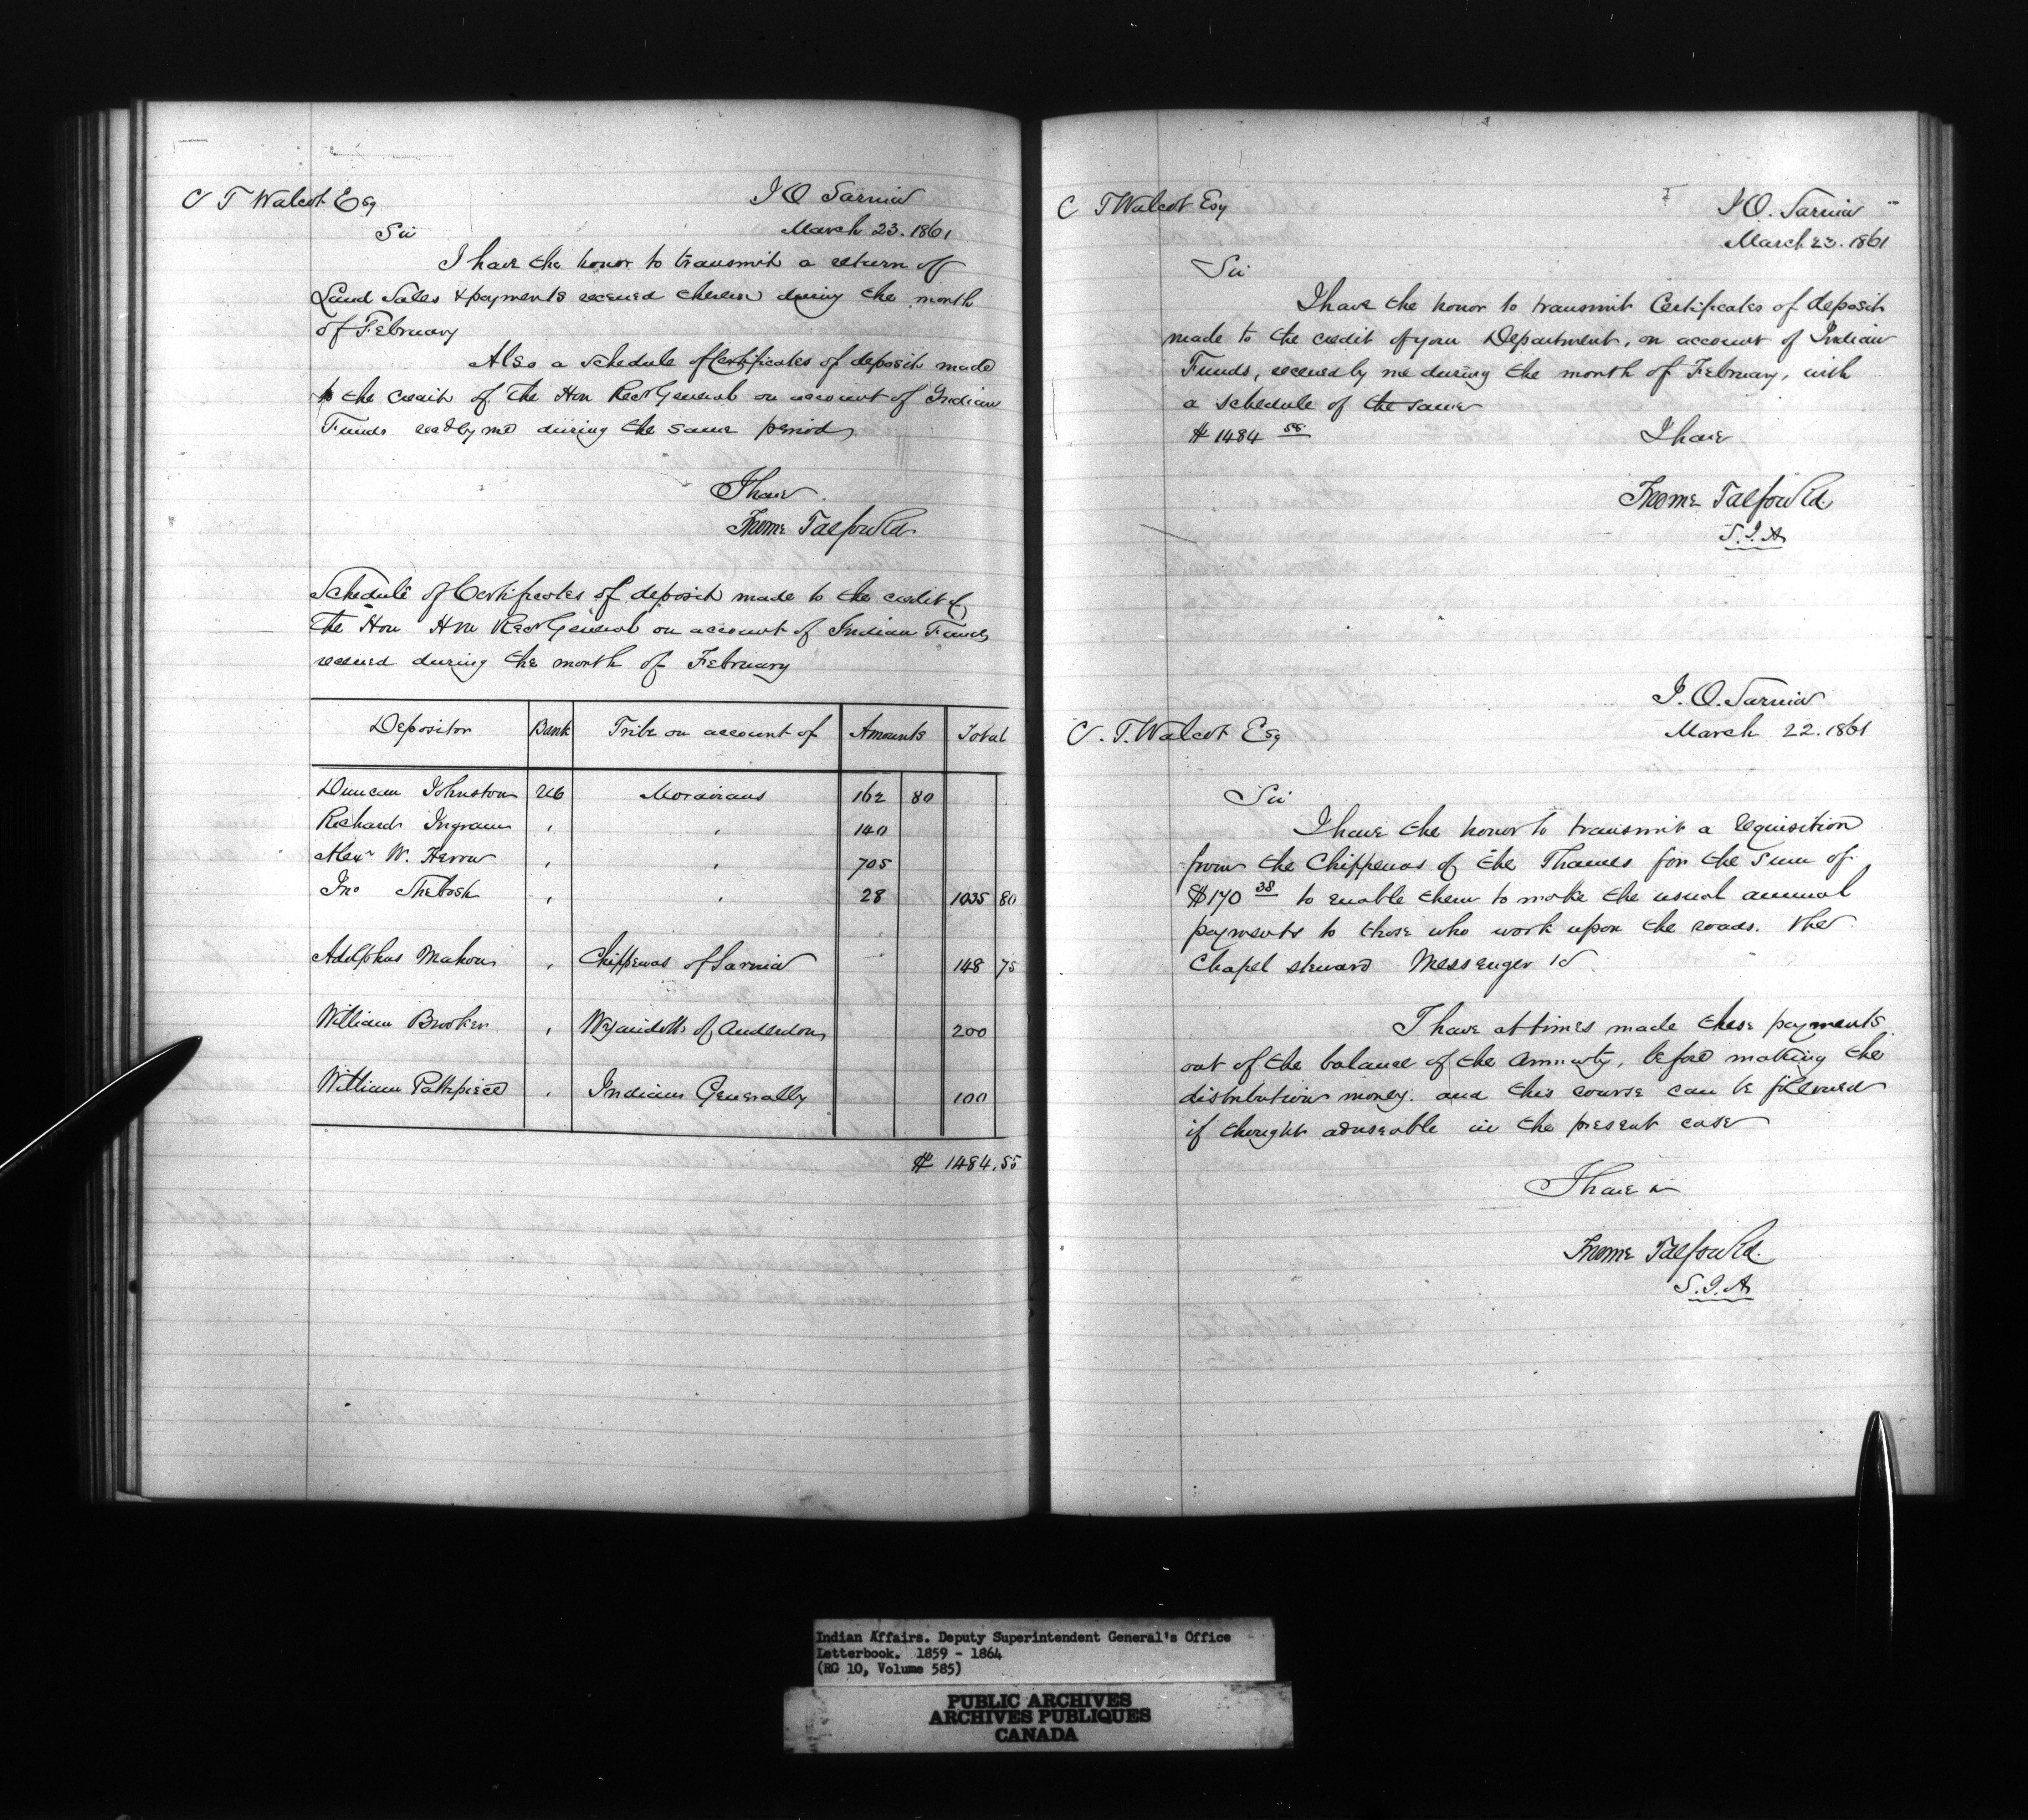 C T Walcot Esq
I O Sarnia
March 23. 1861
Sir
I have the honor to transmit a return of
Land Sales & payments received thereon during the month
of February
Also a schedule of Certificates of deposit made
to the credit of the Hon Recr General on account of Indian
Funds recd by me during the same period
I have
Froome Talfourd
Schedule of Certificates of deposit made to the credit of
The Hon Hon Recr General on account of Indian Funds
received during the month of February
Depositor Bank Tribe on account of Amounts Total
Duncan Johnston Moravians 162 80
Richard Ingram , , 140
Alexr W. Herron , , 705
Jno , , 28 1035 80
Adolphus Mahon , Chippewas of Sarnia 148 75
William Brooker , Wyandotts of Anderdon 200
William Pattepiece , Indians Generally 100
$ 1484.55
C T Walcot Esq
I O. Sarnia
March 23. 1861
Sir
I have the honor to transmit Certificates of deposit
made to the credit of your Department, on account of Indian
Funds, received by me during the month of February, with
a schedule of the same
$ 1484 55
I have
Froome Talfourd
S.I.A
I. O. Sarnia
C. T. Walcot Esq
March 22. 1861
Sir
I have the honor to transmit a requisition
from the Chippewas of the Thames for the sum of
$170 38 to enable them to make the usual annual
payments to those who work upon the roads. the
Chapel steward Messenger
I have at times made these payments
out of the balance of the Annuity, before making the
distribution money. and this course can be followed
if thought adviseable in the present case
I have
Froome Talfourd
S.I.A
Indian Affairs. Deputy Superintendent General's Office
Letterbook. 1859 - 1864
(RG 10, Volume 585)
PUBLIC ARCHIVES
ARCHIVES PUBLIQUES
CANADA